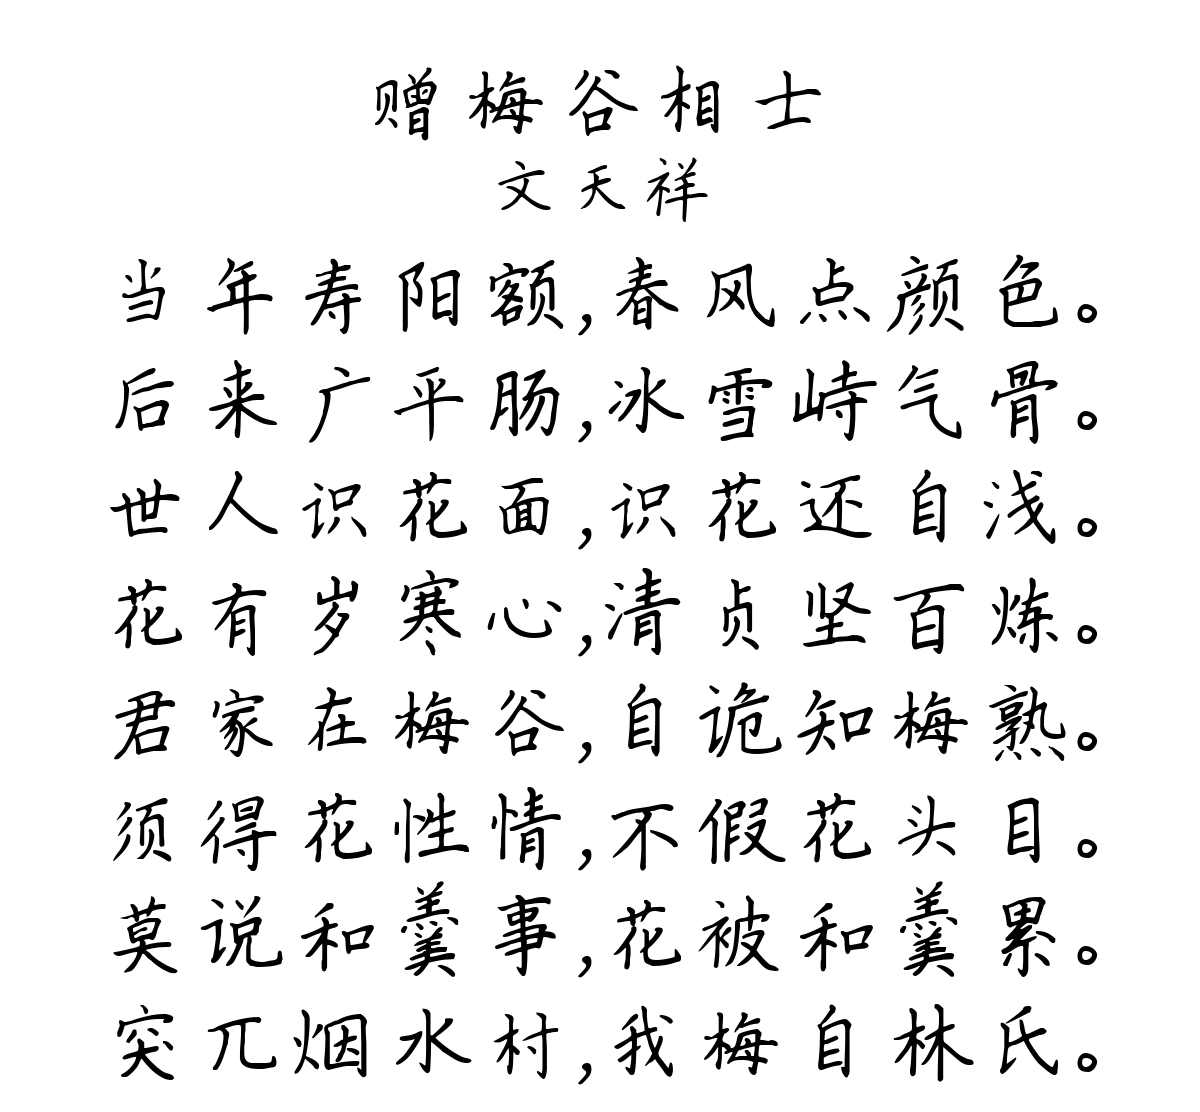 赠梅谷相士
文天祥
当年寿阳额,春风点颜色。
后来广平肠,冰雪峙气骨。
世人识花面,识花还自浅。
花有岁寒心,清贞坚百炼。
君家在梅谷,自诡知梅熟。
须得花性情,不假花头目。
莫说和羹事,花被和羹累。
突兀烟水村,我梅自林氏。